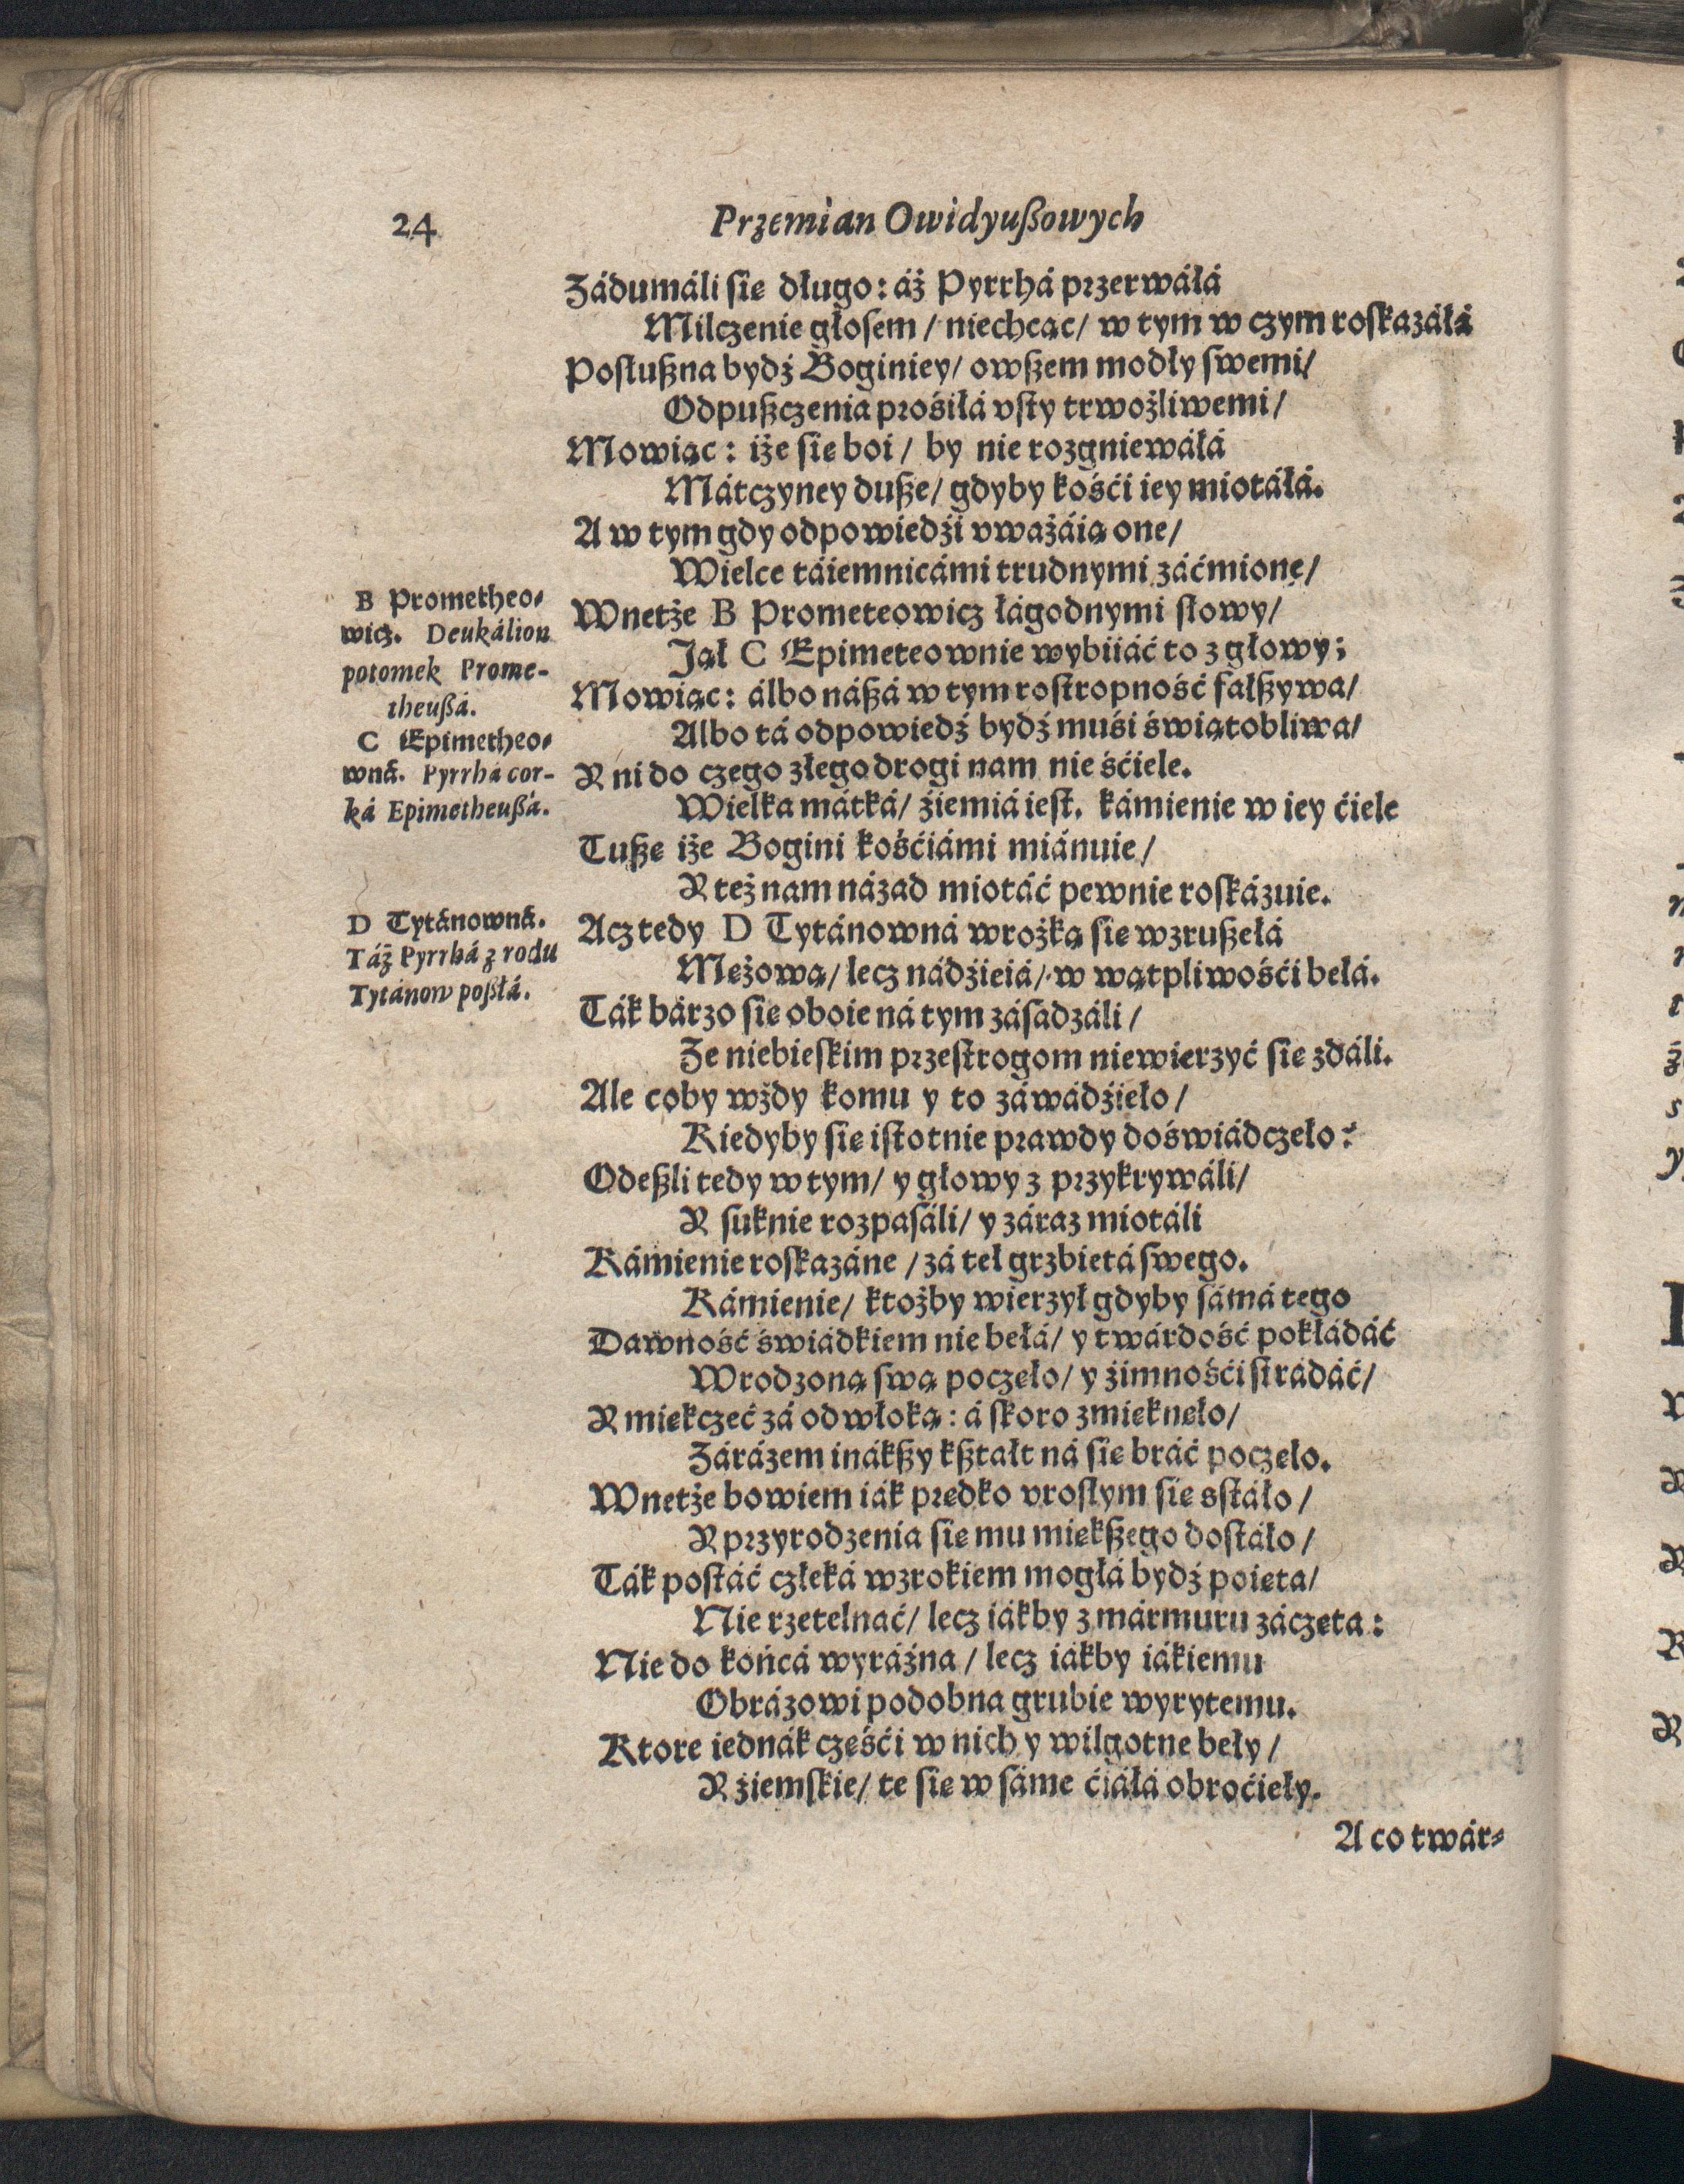 24
Przemian Owidyußowych
Zádumáli ſie długo: áż Pyrrhá przerwáłá
Milczenie głoſem / niechcąc / w tym w czym roſkazáłá
Poſłußna bydź Boginiey / owßem modły ſwemi /
Odpußczenia prośiłá vſty trwożliwemi /
Mowiąc: iże ſie boi / by nie rozgniewáłá
Mátczyney duße / gdyby kośći iey miotáłá.
A w tym gdy odpowiedźi vważáią one /
Wielce táiemnicámi trudnymi záćmione /
Wnetże B Prometeowicz łágodnymi ſłowy /
Jął C Epimeteownie wybiiáć to z głowy;
Mowiąc: álbo náßá w tym roſtropność fałßywa /
Albo tá odpowiedź bydź muśi świątobliwa /
Y ni do czego złego drogi nam nie śćiele.
Wielka mátká / źiemiá ieſt. kámienie w iey ćiele
Tuße iże Bogini kośćiámi miánuie /
Y też nam názad miotáć pewnie roſkázuie.
Acz tedy D Tytánowná wrożką ſie wzrußełá
Meżową / lecz nádźieiá / w wątpliwośći bełá.
Ták bárzo ſie oboie ná tym zásadzáli /
Że niebieſkim przeſtrogom niewierzyć ſie zdáli.
Ale coby wżdy komu y to záwádźieło /
Kiedyby ſie iſtotnie prawdy doświádczeło?
Odeßli tedy w tym / y głowy z przykrywáli /
Y ſuknie rozpaſáli / y záraz miotáli
Kámienie roſkazáne / zá teł grzbietá ſwego.
Kámienie / ktożby wierzył gdyby ſámá tego
Dawność świádkiem nie bełá / y twárdość pokłádáć
Wrodzoną ſwą poczeło / y źimnośći ſtrádáć /
Y miekczeć zá odwłoką: á ſkoro zmiekneło /
Zárázem inákßy kßtałt ná ſie bráć poczeło.
Wnetże bowiem iák predko vroſłym ſie sſtáło /
Y przyrodzenia ſie mu miekßego doſtáło /
Ták poſtáć człeká wzrokiem mogłá bydź poieta /
Nie rzetelnać / lecz iákby z mármuru záczeta:
Nie do końcá wyráźna / lecz iákby iákiemu
Obrázowi podobna grubie wyrytemu.
Ktore iednák cześći w nich y wilgotne beły /
Y źiemſkie / te ſie w ſáme ćiáłá obroćieły.
A co twár⸗
B Prometheo⸗
wicz. Deukálion
potomek Prome-
theußá.
C Epimetheo⸗
wná. Pyrrhá cor-
ká Epimetheußá.
D Tytánowná.
Táż Pyrrhá z rodu
Tytánow poßłá.